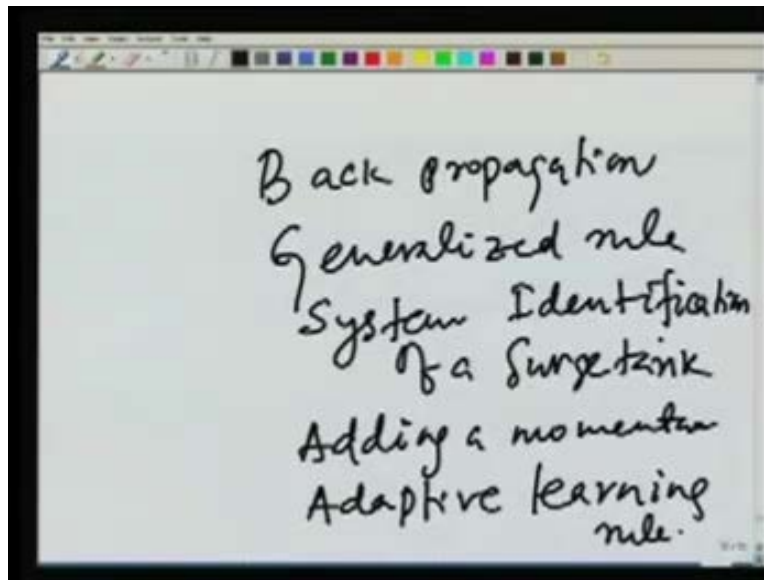 Back propagation
Generalized rule
System Identification
of a Surge tank
Adding a momentum
Adaptive learning
rule.